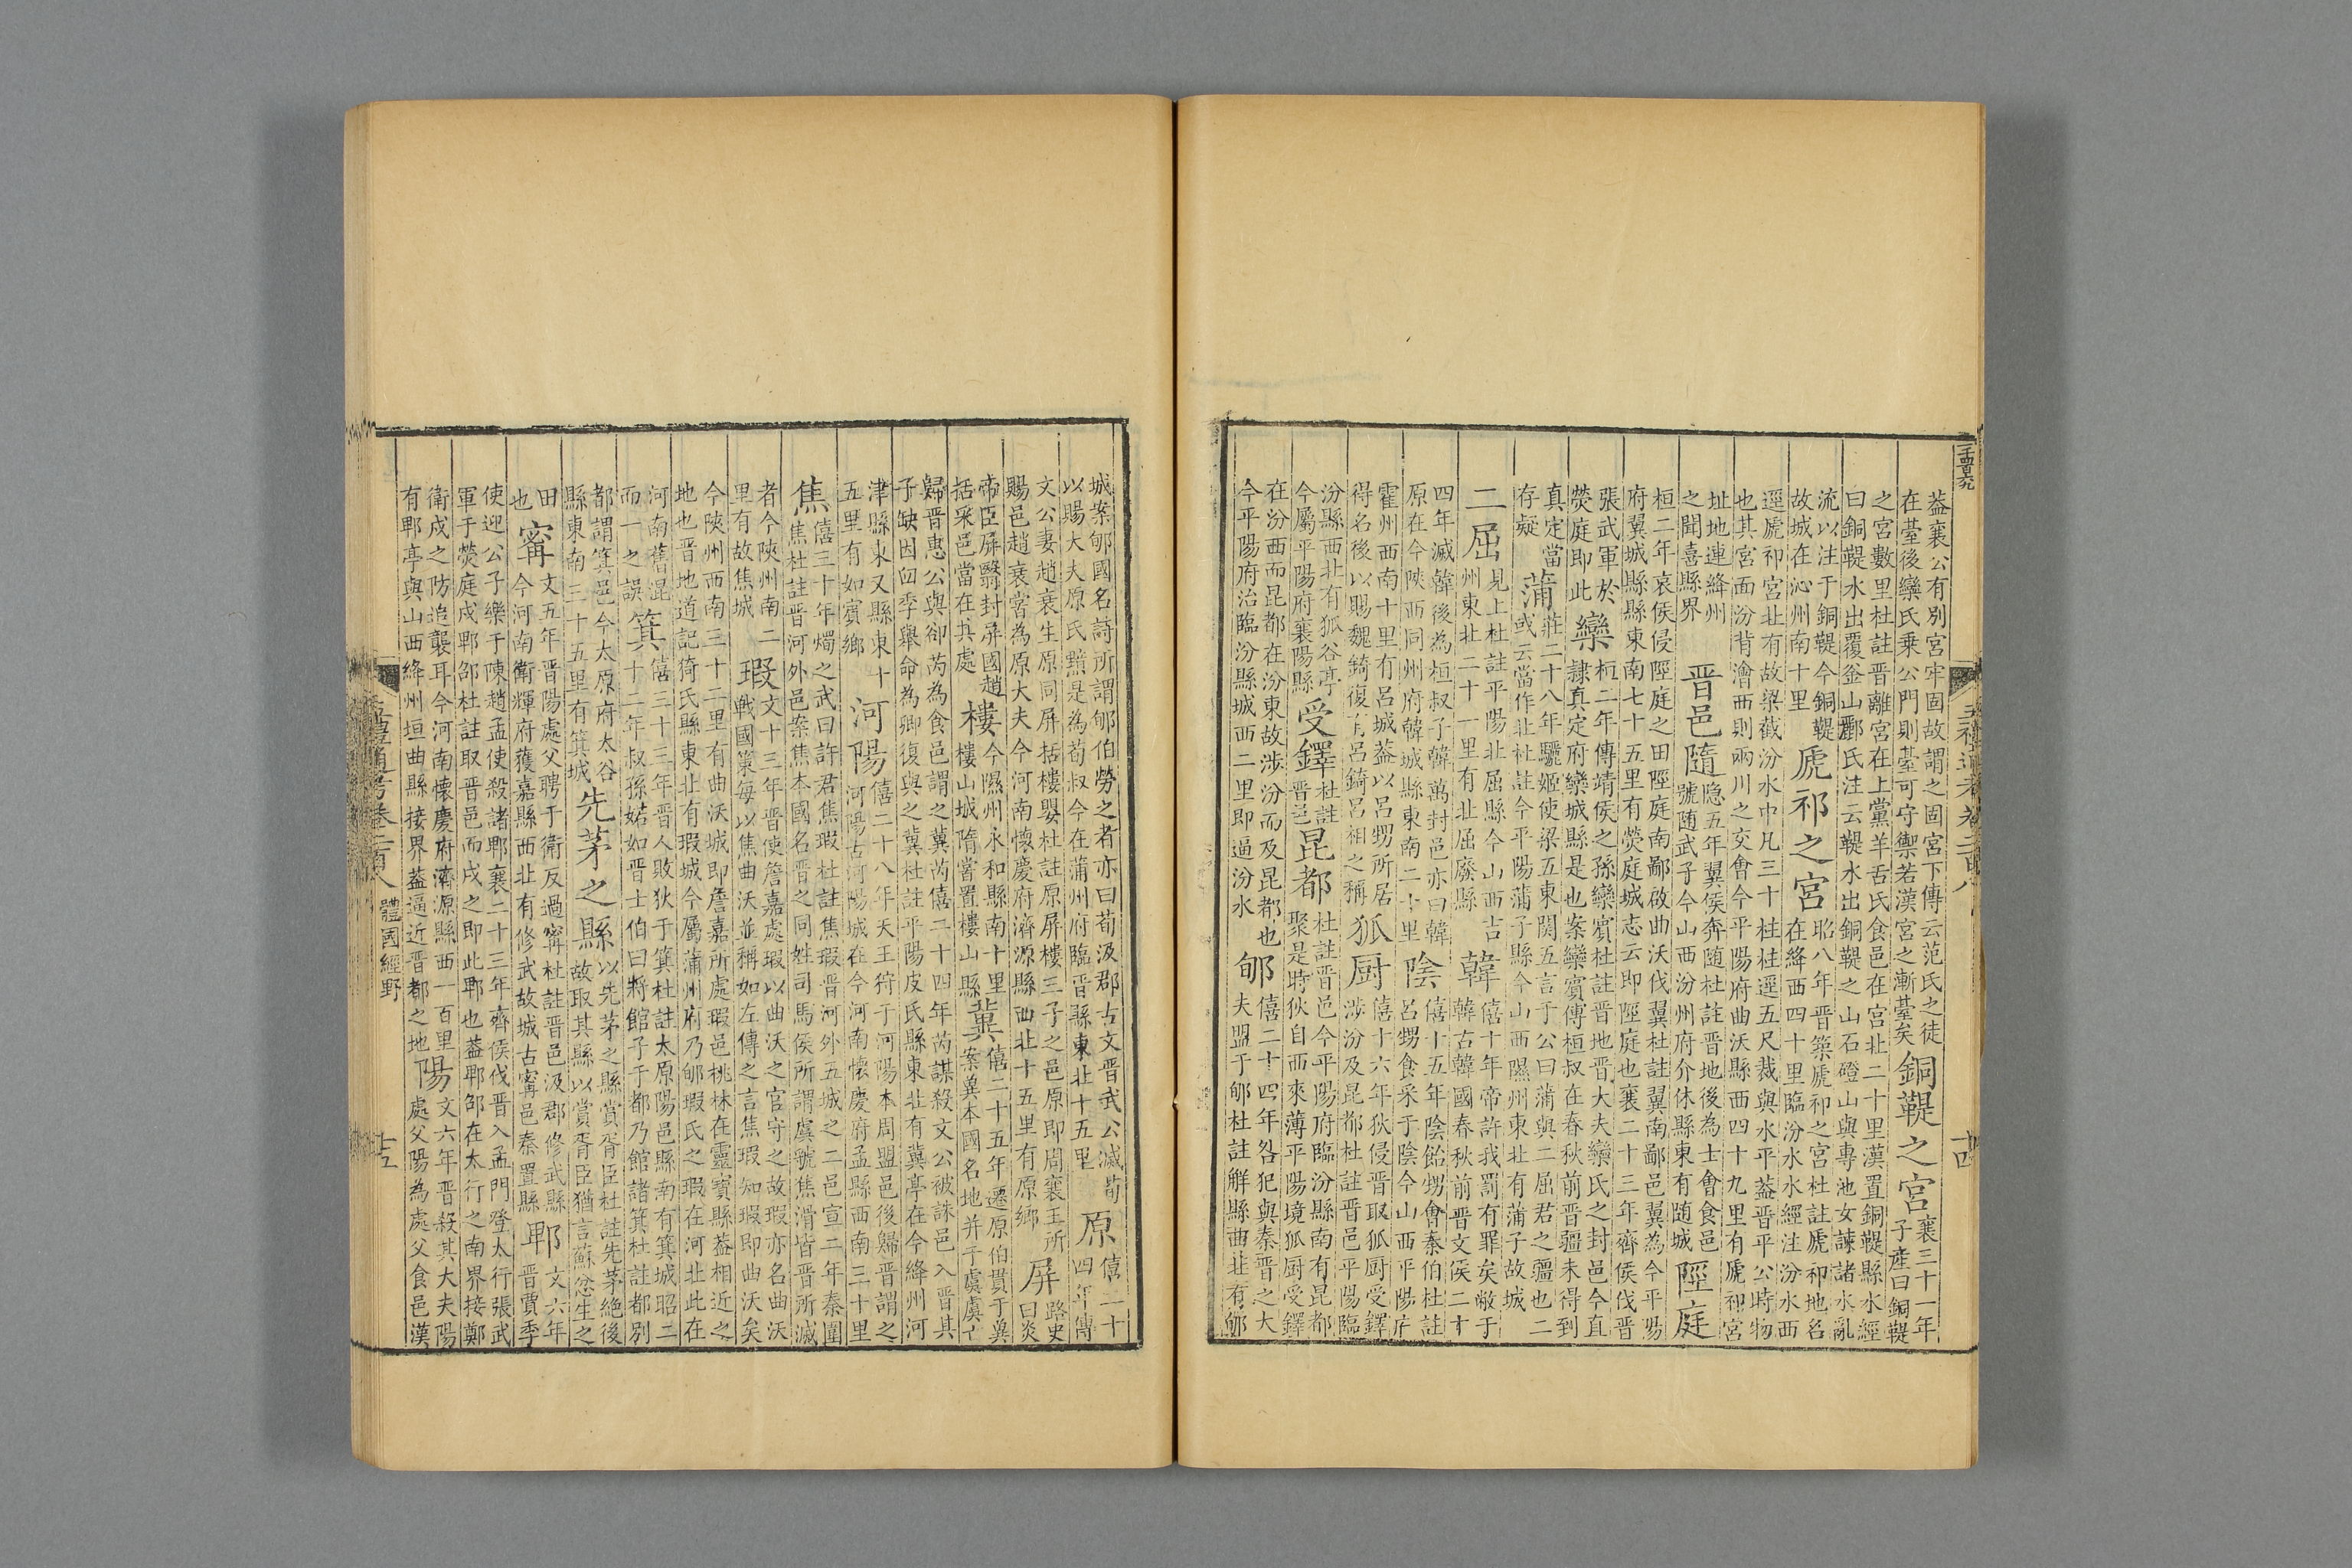 蓋襄公有別宮牢固故謂之固宮下傳云范氏之徒
在臺後欒氏乗公門則臺可守禦若漢宮之漸臺矣
銅鞮之宮
襄三十一年
子產曰銅鞮
之宮數里杜註晉離宮在上黨羊舌氏食邑在宮北二十里漢置銅鞮縣水經
曰銅鞮水出覆釜山酈氏注云鞮水出銅鞮之山石磴山與專池女諫諸水亂
流以注于銅鞮今銅鞮
故城在沁州南十里
虒祁之宮
昭八年晉築虒祁之宮杜註虒祁地名
在絳西四十里臨汾水水經注汾水西
逕虒祁宮北有故梁截汾水中凡三十柱柱逕五尺裁與水平蓋晉平公時物
也其宮面汾背澮西則兩川之交會今平陽府曲沃縣西四十九里有虒祁宮
址地連絳州
之聞喜縣界
晉邑隨
隐五年翼侯奔随杜註晉地後為士會食邑
號随武子今山西汾州府介休縣東有随城
陘庭
桓二年哀侯侵陘庭之田陘庭南鄙啟曲沃伐翼杜註翼南鄙邑翼為今平陽
府翼城縣縣東南七十五里有熒庭城志云即陘庭也襄二十三年齊侯伐晉
張武軍於
熒庭即此
欒
桓二年傳靖侯之孫欒賓杜註晉地晉大夫欒氏之封邑今直
隷真定府欒城縣是也案欒賓傅桓叔在春秋前晉疆未得到
真定當
存疑
蒲
莊二十八年驪姬使梁五東関五言于公曰蒲與二屈君之疆也二
或云當作北杜註今平陽蒲子縣今山西隰州東北有蒲子故城
二屈
見上杜註平陽北屈縣今山西吉
州東北二十一里有北屈廢縣
韓
僖十年帝許我罰有罪矣敝于
韓古韓國春秋前晉文侯二十
四年滅韓後為桓叔子韓萬封邑亦曰韓
原在今陝西同州府韓城縣東南二十里
陰
僖十五年陰飴甥會秦伯杜註
呂甥食采于陰今山西平陽府
霍州西南十里有呂城蓋以呂甥所居
得名後以賜魏錡復有呂錡呂相之稱
狐厨
僖十六年狄侵晉取狐厨受鐸
涉汾及昆都杜註晉邑平陽臨
汾縣西北有狐谷亭
今屬平陽府襄陽縣
受鐸
杜註
晉邑
昆都
杜註晉邑今平陽府臨汾縣南有昆都
聚是時狄自西來薄平陽境狐厨受鐸
在汾西而昆都在汾東故涉汾而及昆都也
今平陽府治臨汾縣城西二里即逼汾水
郇
僖二十四年咎犯與秦晉之大
夫盟于郇杜註解縣西北有郇
城案郇國名詩所謂郇伯勞之者亦曰荀汲郡古文晉武公滅荀
以賜大夫原氏黯是為荀叔今在蒲州府臨晉縣東北十五里
原
僖二十
四年傳
文公妻趙衰生原同屏括樓嬰杜註原屏樓三子之邑原即周襄王所
賜邑趙衰嘗為原大夫今河南懷慶府濟源縣西北十五里有原鄉
屏
路史
曰炎
帝臣屏翳封屏國趙
括采邑當在其處
樓
今隰州永和縣南十里
樓山城隋嘗置樓山縣
冀
僖二十五年遷原伯貫于冀
案冀本國名地并于虞虞亡
歸晉惠公與卻芮為食邑謂之冀芮僖二十四年芮謀殺文公被誅邑入晉其
子缺因臼季舉命為卿復與之冀杜註平陽皮氏縣東北有冀亭在今絳州河
津縣東又縣東十
五里有如賓鄉
河陽
僖二十八年天王狩于河陽本周盟邑後歸晉謂之
河陽古河陽城在今河南懷慶府孟縣西南三十里
焦
僖三十年燭之武曰許君焦瑕杜註焦瑕晉河外五城之二邑宣二年秦圍
焦杜註晉河外邑案焦本國名晉之同姓司馬侯所謂虞虢焦滑皆晉所滅
者今陝州南二
里有故焦城
瑕
文十三年晉使詹嘉處瑕以曲沃之官守之故瑕亦名曲沃
戰國策每以焦曲沃並稱如左傳之言焦瑕知瑕即曲沃矣
今陝州西南三十二里有曲沃城即詹嘉所處瑕邑桃林在靈寶縣蓋相近之
地也晉地道記猗氏縣東北有瑕城今屬蒲州府乃郇瑕氏之瑕在河北此在
河南舊混
而一之誤
箕
僖三十三年晉人敗狄于箕杜註太原陽邑縣南有箕城昭二
十二年叔孫婼如晉士伯曰將館子于都乃館諸箕杜註都別
都謂箕邑今太原府太谷
縣東南三十五里有箕城
先茅之縣
以先茅之縣賞胥臣杜註先茅絶後
故取其縣以賞胥臣猶言蘇忿生之
田
也
甯
文五年晉陽處父聘于衛反過甯杜註晉邑汲郡修武縣
今河南衛輝府獲嘉縣西北有修武故城古甯邑秦置縣
郫
文六年
晉賈季
使迎公子樂于陳趙孟使殺諸郫襄二十三年齊侯伐晉入孟門登太行張武
軍于熒庭戍郫邵杜註取晉邑而戍之即此郫也蓋郫邵在太行之南界接鄭
衛戍之防追襲耳今河南懷慶府濟源縣西一百里
有郫亭與山西絳州垣曲縣接界蓋逼近晉都之地
陽
文六年晉殺其大夫陽
處父陽為處父食邑漢
五禮通考卷二百八
體國經野
十五